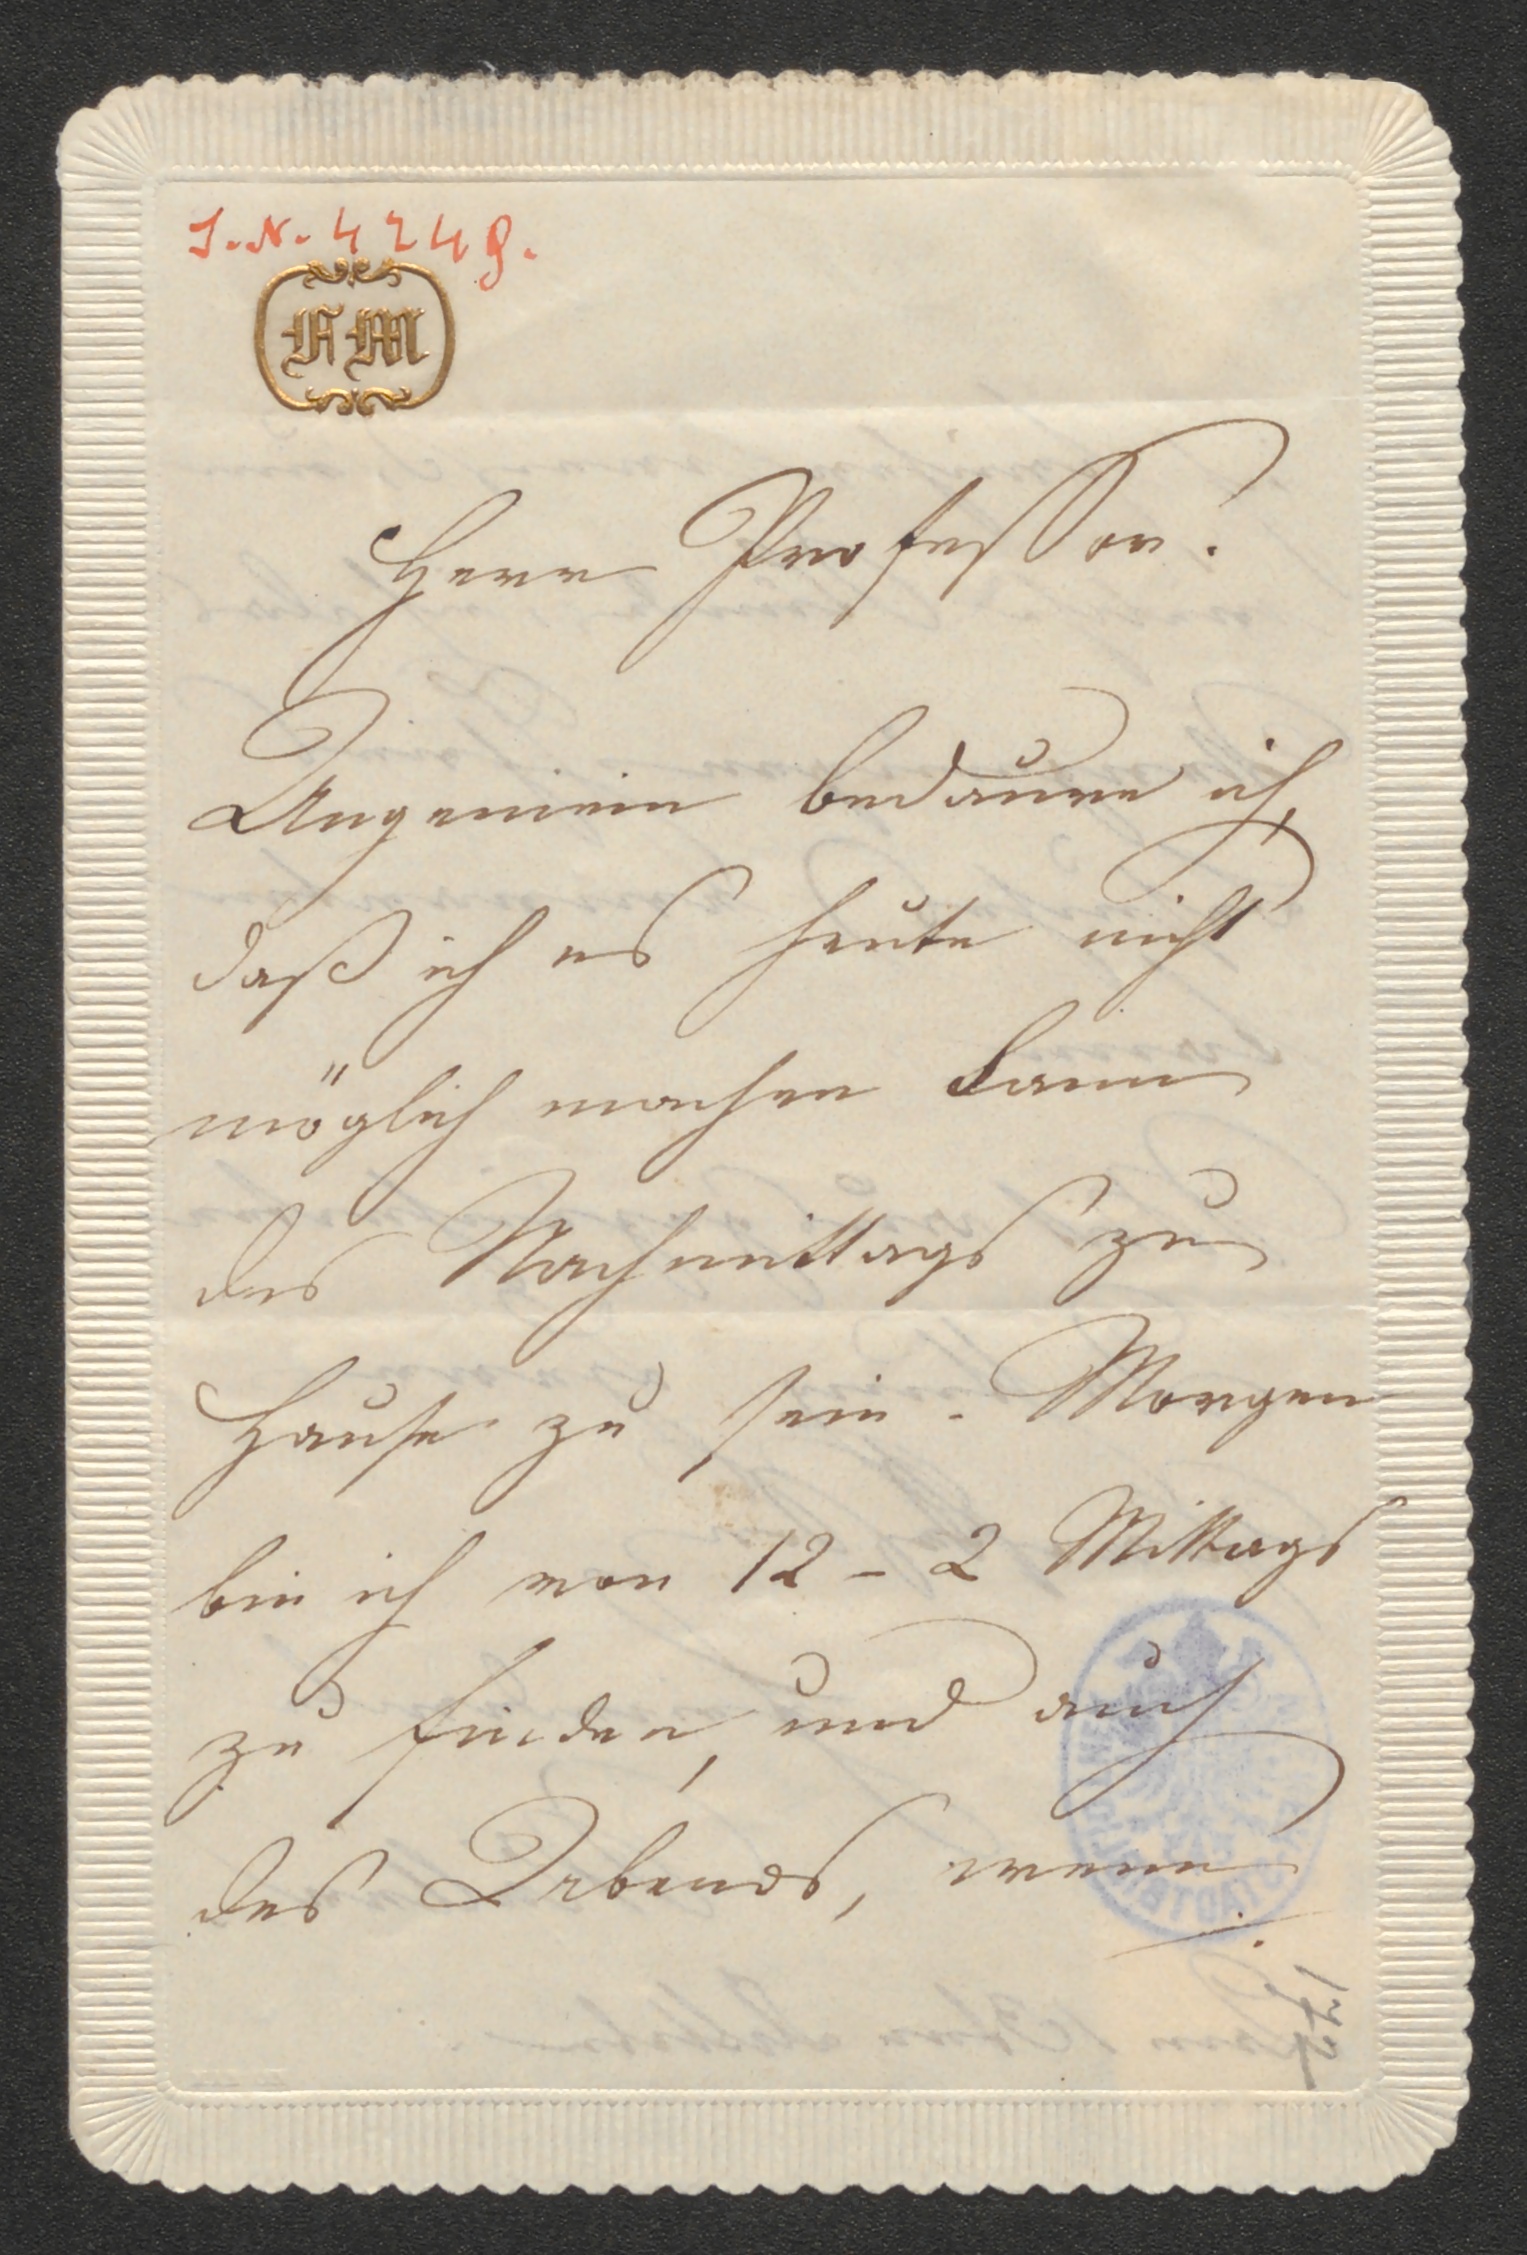 I.N. 4248.
FM
Herr Professor!
Ungemein bedaure ich,
daß ich es heute nicht
möglich machen kann
des Nachmittags zu
Hause zu sein. Morgen
bin ich von 12-2 Mittags
zu finden, und auch
des Abends, wenn
./.